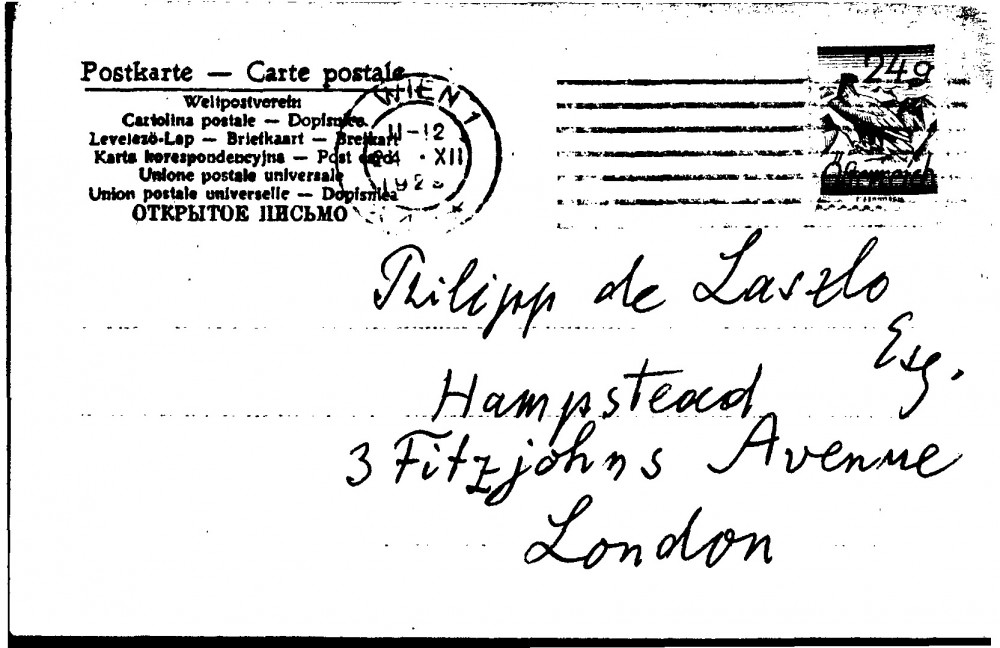 Postkarte — Carte postale
Weltpostverein
Cartolina postale — Dopisnica
Levelező-Lap — Briefkaart — Brefkort
Karta korespondencyjna — Post card
Unione postale universale
Union postale universelle — Dopisnica
ОТКРЫТОЕ ПИСЬМО
WIEN 1
11-12
XII
24g
Österreich
Philipp de Laszlo
Esq.
Hampstead
3 Fitzjohns Avenue
London